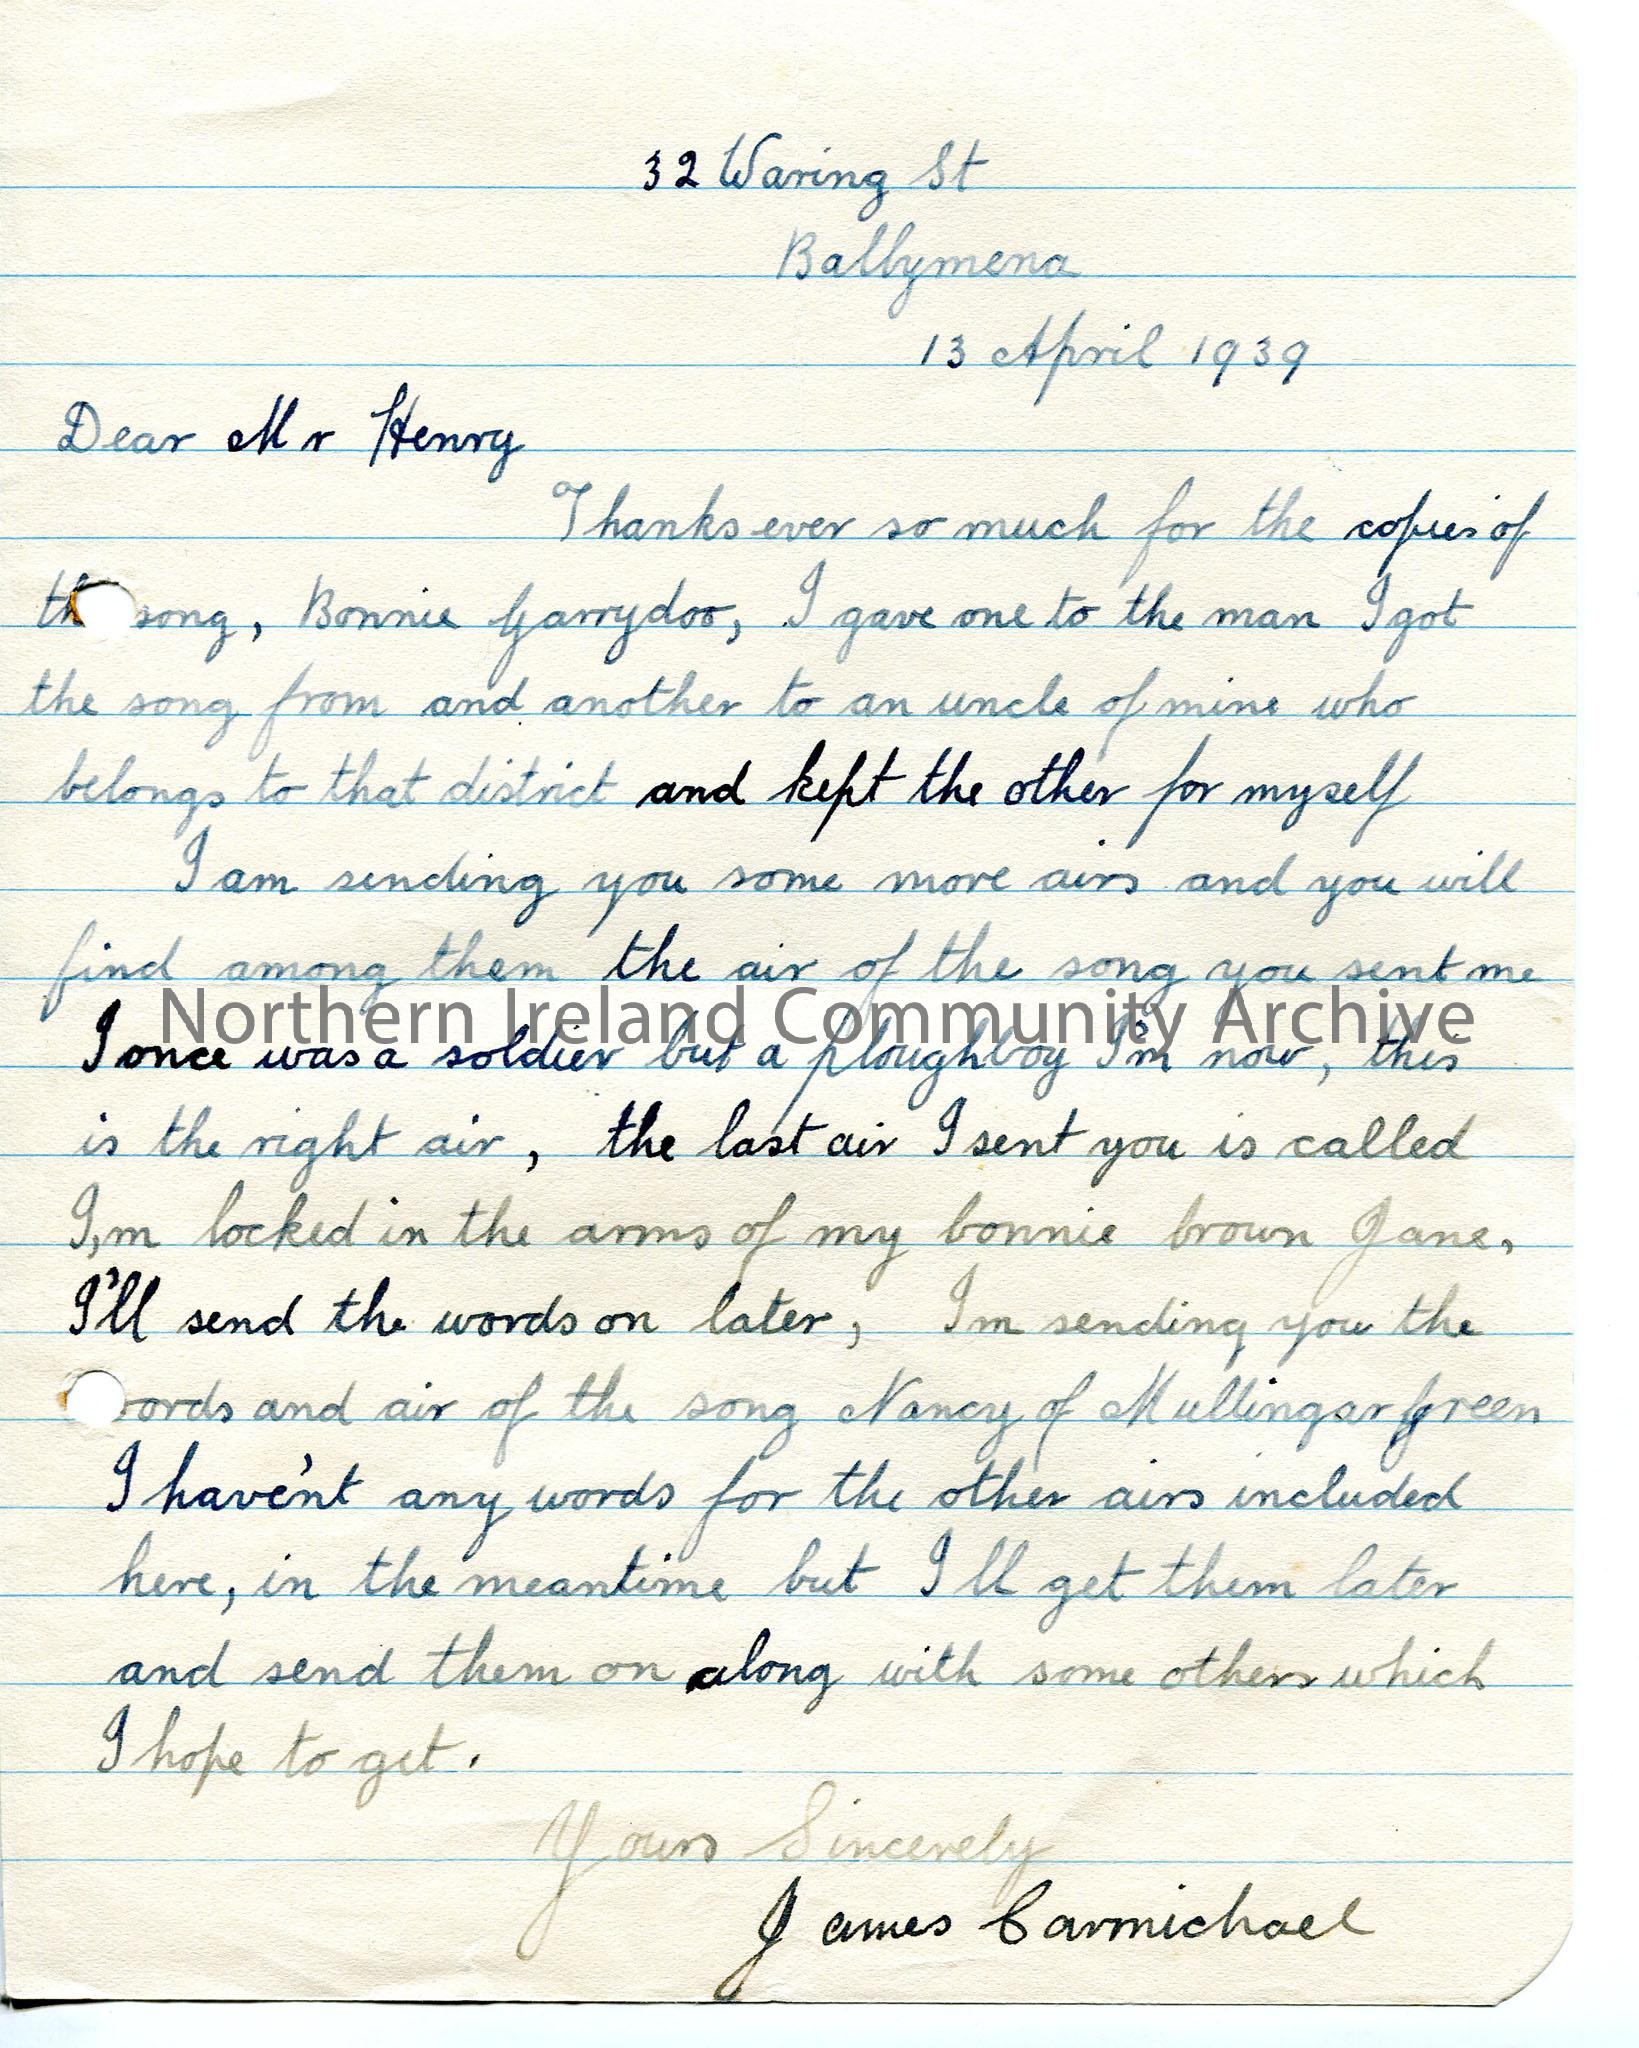 32 Waring St
Ballymena
13 April 1939
Dear Mr Henry
Thanks ever so much for the copies of
th song, Bonnie Garrydoo, I gave one to the man I got
the song from and another to an uncle of mine who
belongs to that district and kept the other for myself
I am sending you some more airs and you will
find among them the air of the song you sent me
Northern Ireland Community Archive
I once was a soldier but a ploughboy I'm now, this
is the right air, the last air I sent you is called
I,m locked in the arms of my bonnie brown Jane,
I'll send the words on later, Im sending you the
ords and air of the song Nancy of Mullingar Green
I haven't any words for the other airs included
here, in the meantime but I'll get them later
and send them on along with some others which
I hope to get.
Yours Sincerely
James Carmichael